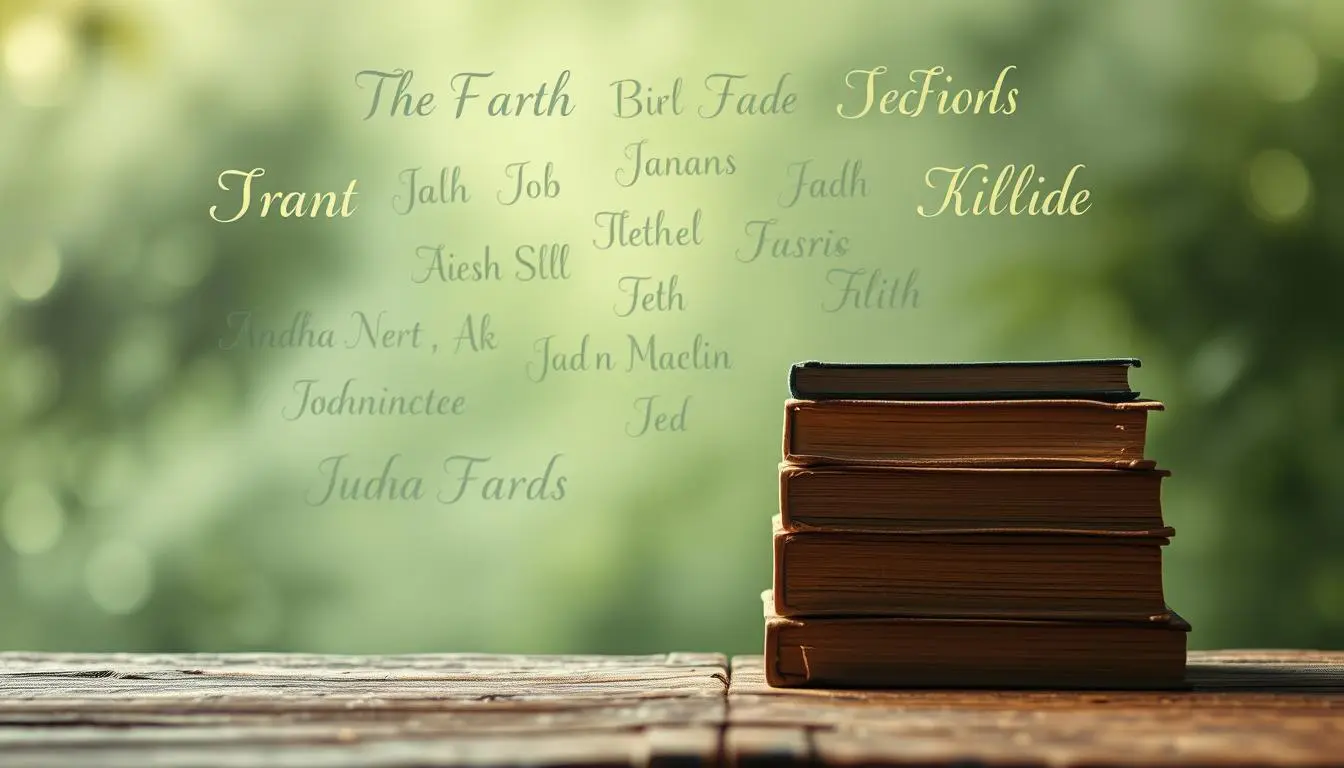 The Farth Birl Fade Jecfiorls
Janans
Trant Jalh Job Jadh Killide
Tlethel
Aiesh Slll Fusris
Teth Filith
Andha Nert, Ak Jad n Maclin
Jodhninctee Jed
Judha Fards